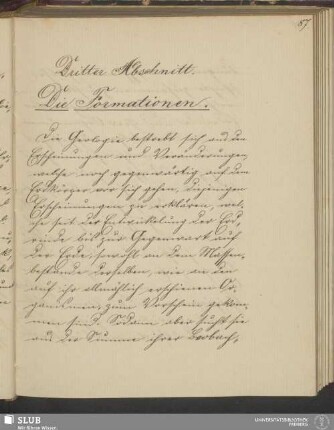 87
Dritter Abschnitt.
Die Formationen.
Die Geologie bestrebt sich aus den
Erscheinungen und Veränderungen,
welche noch gegenwärtig auf dem
Erdkörper vor sich gehen, diejenigen
Erscheinungen zu erklären, wel-
che seit der Entwickelung der Erd
rinde bis zur Gegenwart auf
der Erde, sowohl an dem Massen,
bestande derselben, wie an den
auf ihr allmählich erschienen Or,
ganismen, zum Vorschein gekom,
men sind. Sodann aber sucht sie
aus der Summe ihrer Beobach,
SLUB
Wir führen Wissen.
UNIVERSITÄTSBIBLIOTHEK
FREIBERG